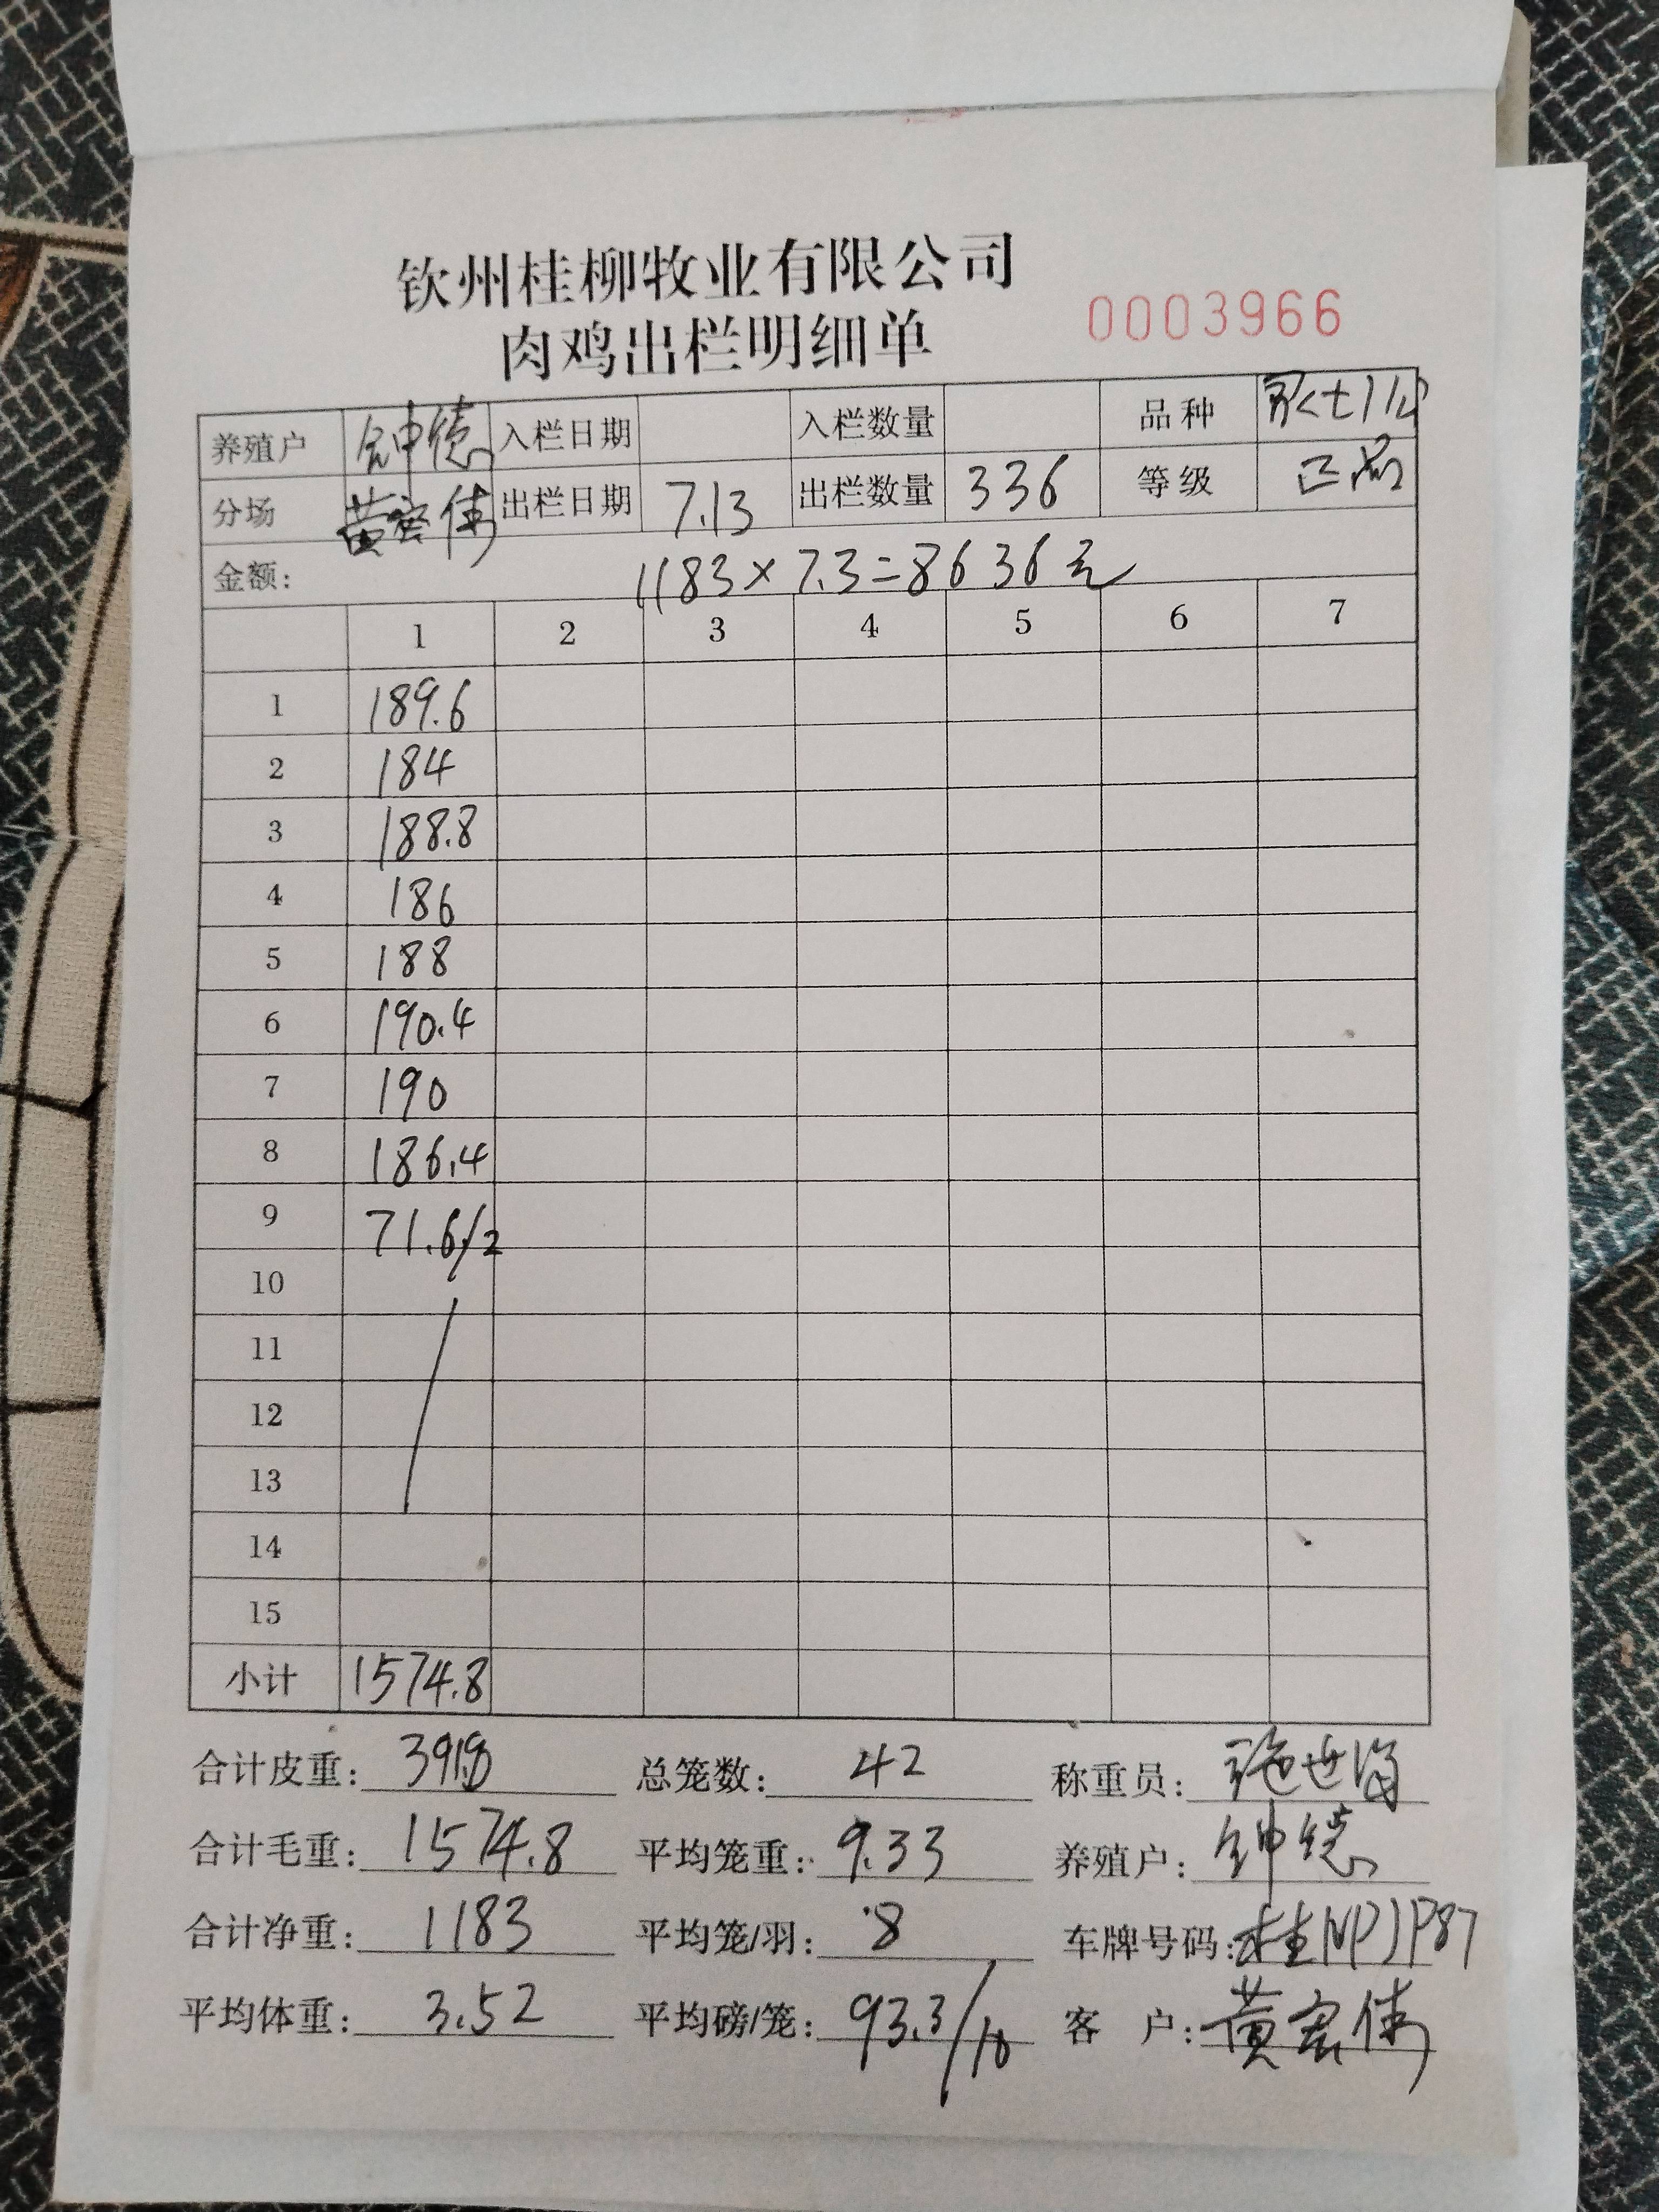 钦州桂柳牧业有限公司
肉鸡出栏明细单
0003966
养殖户 钟德 入栏日期 入栏数量 品种
分场 黄宏伟 出栏日期 7.13 出栏数量 336 等级 正品
金额: 1183×7.3=8636元
1 2 3 4 5 6 7
1 189.6
2 184
3 188.8
4 186
5 188
6 190.4
7 190
8 186.4
9 71.6/2
10
11
12
13
14
15
小计 1574.8
合计皮重: 391.8 总笼数: 42 称重员:
合计毛重: 1574.8 平均笼重: 9.33 养殖户: 钟德
合计净重: 1183 平均笼/羽: 8 车牌号码:
平均体重: 3.52 平均磅/笼: 93.3/10 客 户: 黄宏伟